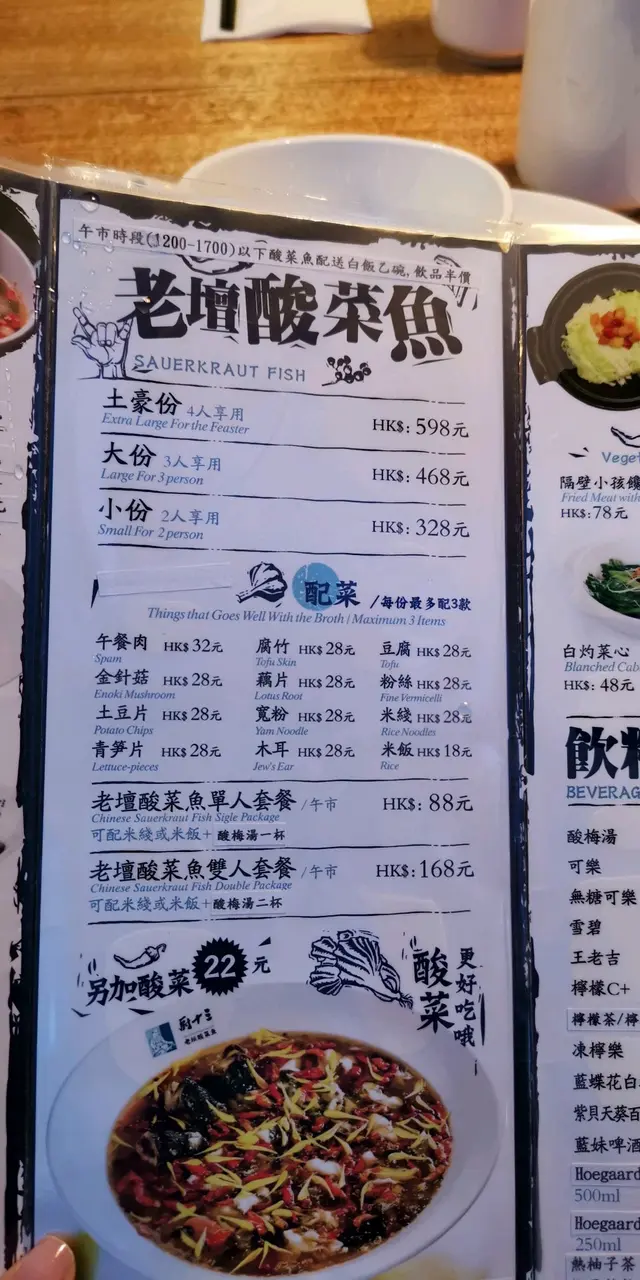 午市時段(1200-1700)以下酸菜魚配送白飯乙碗,飲品半價
老壇酸菜魚
SAUERKRAUT FISH
土豪份 4人享用 HK$: 598元
Extra Large For the Feaster
大份 3人享用 HK$: 468元
Large For 3 person
小份 2人享用 HK$: 328元
Small For 2 person
配菜 /每份最多配3款
Things that Goes Well With the Broth / Maximum 3 Items
午餐肉 HK$ 32元 腐竹 HK$ 28元 豆腐 HK$ 28元
Spam Tofu Skin Tofu
金針菇 HK$ 28元 藕片 HK$ 28元 粉絲 HK$ 28元
Enoki Mushroom Lotus Root Fine Vermicelli
土豆片 HK$ 28元 寬粉 HK$ 28元 米綫 HK$ 28元
Potato Chips Yam Noodle Rice Noodles
青笋片 HK$ 28元 木耳 HK$ 28元 米飯 HK$ 18元
Lettuce-pieces Jew's Ear Rice
老壇酸菜魚單人套餐 /午市 HK$: 88元
Chinese Sauerkraut Fish Sigle Package
可配米綫或米飯+酸梅湯一杯
老壇酸菜魚雙人套餐 /午市 HK$: 168元
Chinese Sauerkraut Fish Double Package
可配米綫或米飯+酸梅湯二杯
另加酸菜 22 元
酸菜
更好吃哦
老壇酸菜魚
隔壁小孩
Fried Meat with
HK$: 78元
白灼菜心
Blanched
HK$: 48元
飲
BEVERAG
酸梅湯
可樂
無糖可樂
雪碧
王老吉
檸檬C+
檸檬茶/檸
凍檸樂
藍蝶花白
紫貝天葵百
藍妹啤酒
Hoegaard
500ml
Hoegaard
250ml
熱柚子茶